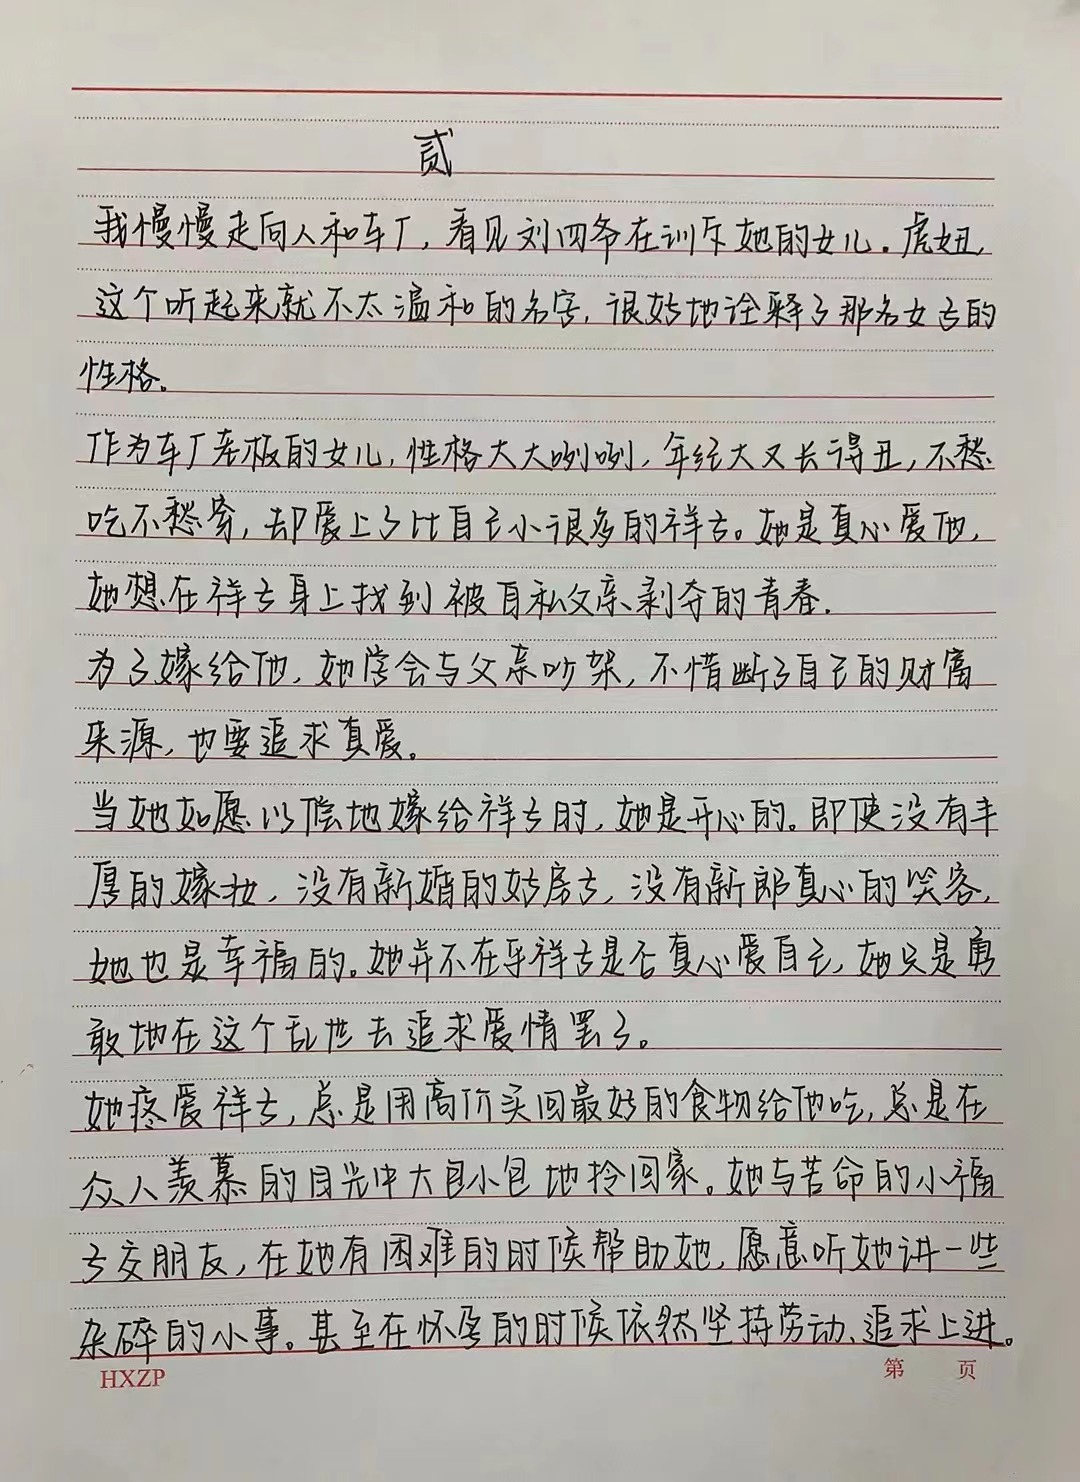 贰
我慢慢走向人和车厂，看见刘四爷在训斥她的女儿。虎妞，
这个听起来就不太温和的名字，很好地诠释了那名女子的
性格。
作为车厂老板的女儿，性格大大咧咧，年经大又长得丑，不愁
吃不愁穿，却爱上了比自己小很多的祥子。她是真心爱他，
她想在祥子身上找到被自私父亲剥夺的青春.
为了嫁给他，她学会与父亲吵架，不惜断了自己的财富
来源，也要追求真爱。
当她如愿以偿地嫁给祥子时，她是开心的。即使没有丰
厚的嫁妆，没有新婚的好房子，没有新郎真心的笑容，
她也是幸福的。她并不在乎祥子是否真心爱自己，她只是勇
敢地在这个乱世去追求爱情罢了。
她疼爱祥子，总是用高价买回最好的食物给他吃，总是在
众人羡慕的目光中大包小包地拎回家。她与苦命的小福
子交朋友，在她有困难的时候帮助她，愿意听她讲一些
杂碎的小事。甚至在怀孕的时候依然坚持劳动、追求上进。
HXZP 第 页